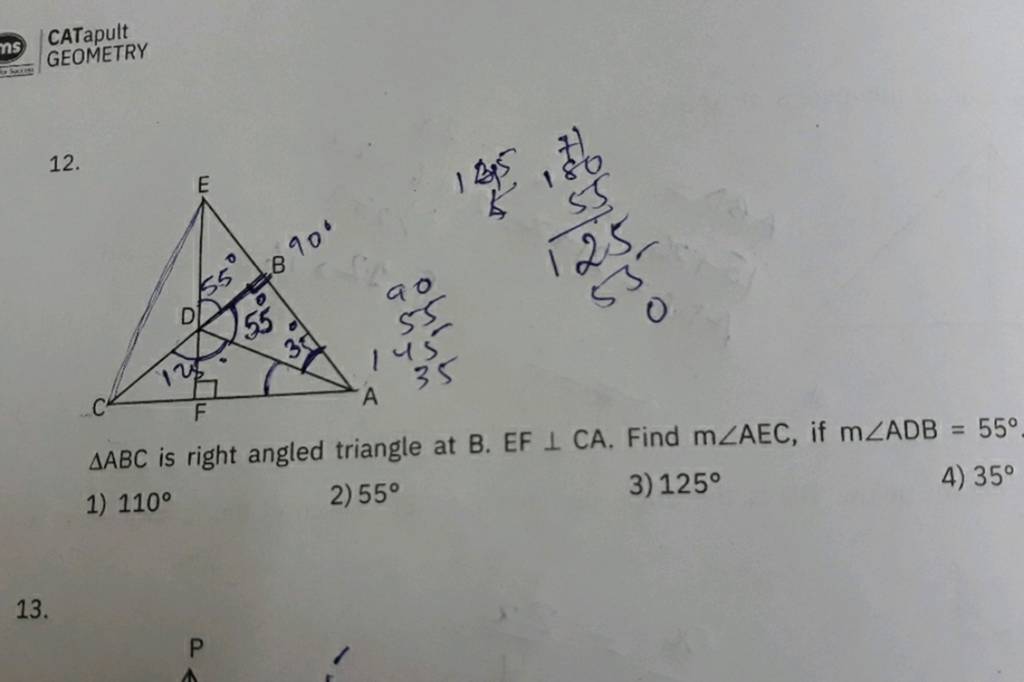 ms
CATapult
GEOMETRY
for Success
12.
E
B
90°
55°
D
55°
35°
125°
C
F
A
180
55
125
55
0
90
55
145
35
∆ABC is right angled triangle at B. EF ⊥ CA. Find m∠AEC, if m∠ADB = 55°.
1) 110°
2) 55°
3) 125°
4) 35°
13.
P